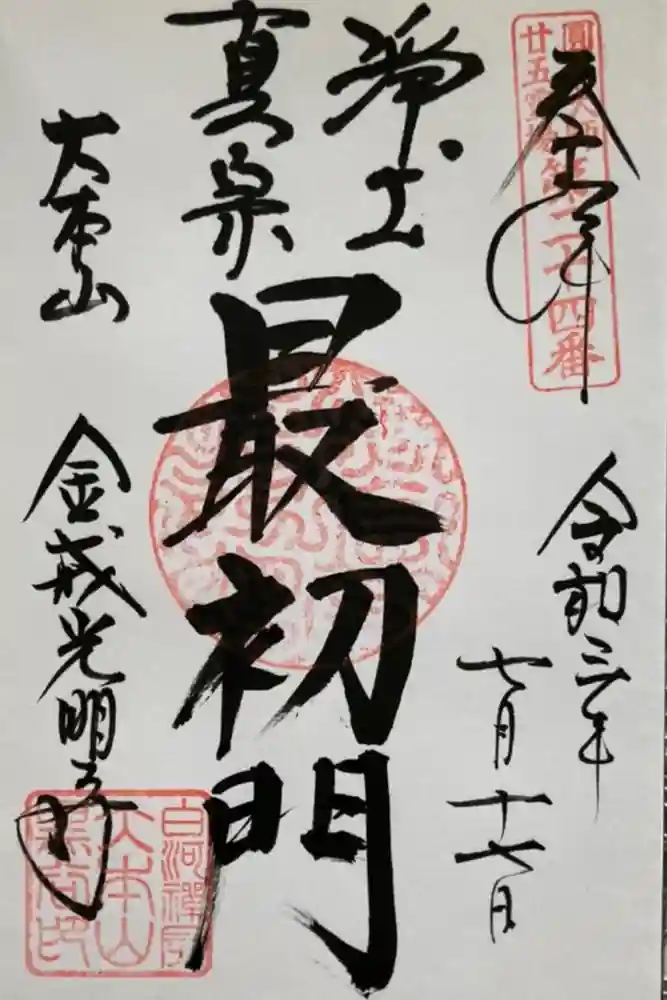 奉拝
圓光大師
廿五霊場第二十四番
令和三年
七月十七日
浄土
真宗
最初門
大本山
金戒光明寺
白河禅房
大本山
黒谷印